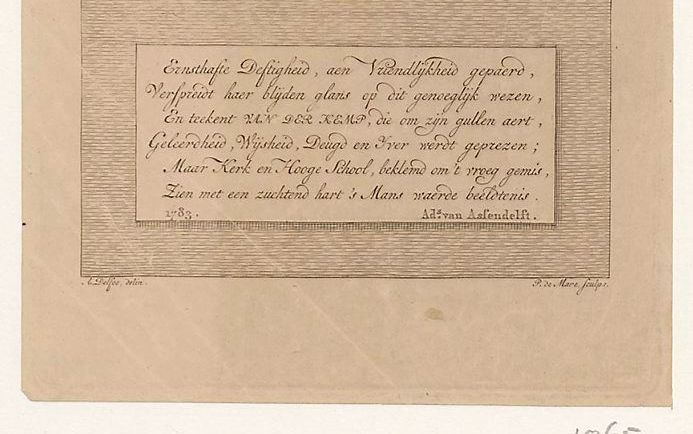 Ernsthafte Deftigheid, aen Vriendlijkheid gepaerd,
Verspreidt haer blijden glans op dit genoeglijk wezen,
En teekent VAN DER KEMP, die om zijn gullen aert,
Geleerdheid, Wijsheid, Deugd en Yver werdt geprezen;
Maar Kerk en Hooge School, beklemd om't vroeg gemis,
Zien met een zuchtend hart 's Mans waerde beeldtenis.
1783. Ad.s van Assendelft.
A. Delfos, delin. P. de Mare, sculps.